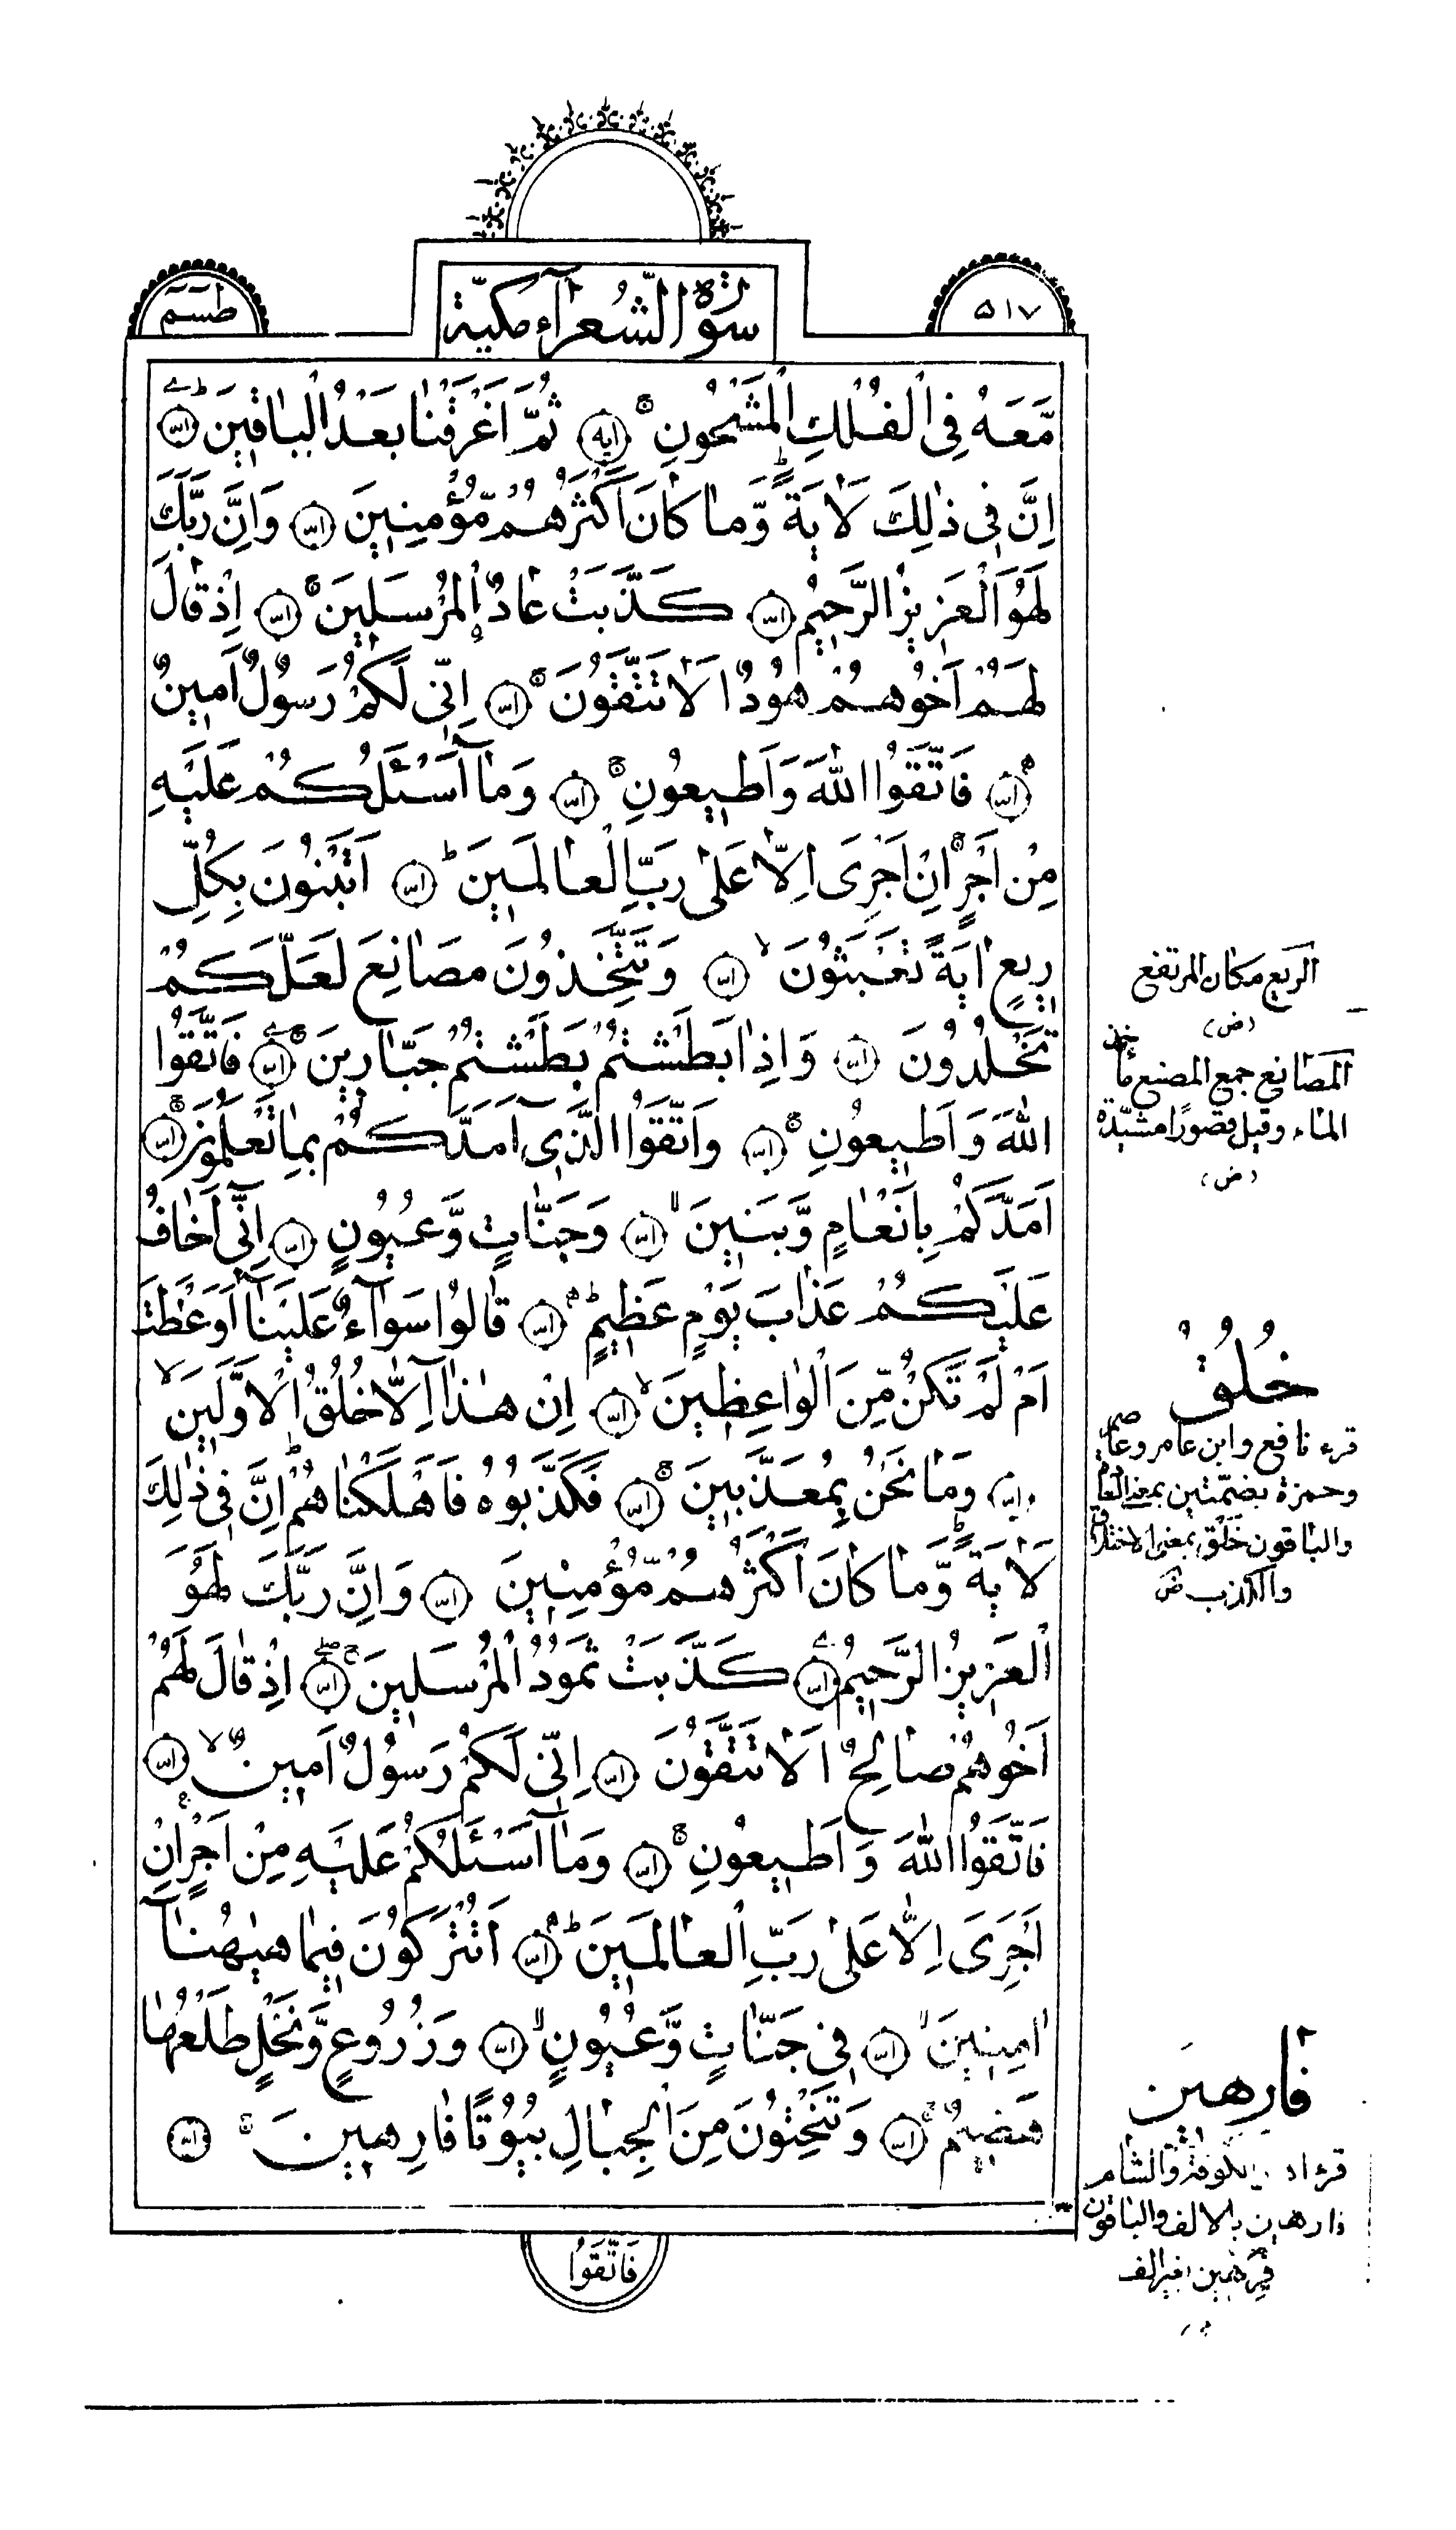 ٥١٧
سورة الشعرآء مكيّة
طسٓمٓ
مَّعَهُ فِى الْفُلْكِ الْمَشْحُونِ ۝ ثُمَّ اَغْرَقْنٰا بَعْدُ الْبٰاقِينَ ۝
اِنَّ فِى ذٰلِكَ لَاٰيَةً وَّمٰا كٰانَ اَكْثَرُهُمْ مُّؤْمِنِينَ ۝ وَاِنَّ رَبَّكَ
لَهُوَ الْعَزِيزُ الرَّحِيمُ ۝ كَذَّبَتْ عٰادٌ الْمُرْسَلِينَ ۝ اِذْ قٰالَ
لَهُمْ اَخُوهُمْ هُودٌ اَلٰا تَتَّقُونَ ۝ اِنِّى لَكُمْ رَسُولٌ اَمِينٌ
۝ فَاتَّقُوا اللّٰهَ وَاَطِيعُونِ ۝ وَمٰآ اَسْئَلُكُمْ عَلَيْهِ
مِنْ اَجْرٍ اِنْ اَجْرِىَ اِلّٰا عَلىٰ رَبِّ الْعٰالَمِينَ ۝ اَتَبْنُونَ بِكُلِّ
رِيعٍ اٰيَةً تَعْبَثُونَ ۝ وَتَتَّخِذُونَ مَصٰانِعَ لَعَلَّكُمْ
تَخْلُدُونَ ۝ وَاِذٰا بَطَشْتُمْ بَطَشْتُمْ جَبّٰارِينَ ۝ فَاتَّقُوا
اللّٰهَ وَاَطِيعُونِ ۝ وَاتَّقُوا الَّذِىٓ اَمَدَّكُمْ بِمٰا تَعْلَمُونَ ۝
اَمَدَّكُمْ بِاَنْعٰامٍ وَّبَنِينَ ۝ وَجَنّٰاتٍ وَّعُيُونٍ ۝ اِنِّىٓ اَخٰافُ
عَلَيْكُمْ عَذٰابَ يَوْمٍ عَظِيمٍ ۝ قٰالُوا سَوٰآءٌ عَلَيْنٰآ اَوَعَظْتَ
اَمْ لَمْ تَكُنْ مِّنَ الْوٰاعِظِينَ ۝ اِنْ هٰذٰآ اِلّٰا خُلُقُ الْاَوَّلِينَ
۝ وَمٰا نَحْنُ بِمُعَذَّبِينَ ۝ فَكَذَّبُوهُ فَاَهْلَكْنٰاهُمْ اِنَّ فِى ذٰلِكَ
لَاٰيَةً وَّمٰا كٰانَ اَكْثَرُهُمْ مُّؤْمِنِينَ ۝ وَاِنَّ رَبَّكَ لَهُوَ
الْعَزِيزُ الرَّحِيمُ ۝ كَذَّبَتْ ثَمُودُ الْمُرْسَلِينَ ۝ اِذْ قٰالَ لَهُمْ
اَخُوهُمْ صٰالِحٌ اَلٰا تَتَّقُونَ ۝ اِنِّى لَكُمْ رَسُولٌ اَمِينٌ ۝
فَاتَّقُوا اللّٰهَ وَاَطِيعُونِ ۝ وَمٰآ اَسْئَلُكُمْ عَلَيْهِ مِنْ اَجْرٍ اِنْ
اَجْرِىَ اِلّٰا عَلىٰ رَبِّ الْعٰالَمِينَ ۝ اَتُتْرَكُونَ فِيمٰا هٰيهُنٰآ
اٰمِنِينَ ۝ فِى جَنّٰاتٍ وَّعُيُونٍ ۝ وَزُرُوعٍ وَّنَخْلٍ طَلْعُهٰا
هَضِيمٌ ۝ وَتَنْحِتُونَ مِنَ الْجِبٰالِ بُيُوتًا فٰارِهِينَ ۝
فَاتَّقُوا
الريع مكان المرتفع
(ض)
المصانع جمع المصنع مأخذ
الماء وقيل قصورًا مشيّدة
(ض)
خُلُقُ
قرء نافع وابن عامر وعاصم
وحمزة بضمّتين بمعنى
والباقون خَلْق بمعنى الاختلاق
والكذب ض
فارهين
قرء الكوفة والشام
فارهين بالالف والباقون
فرهين بغير الف